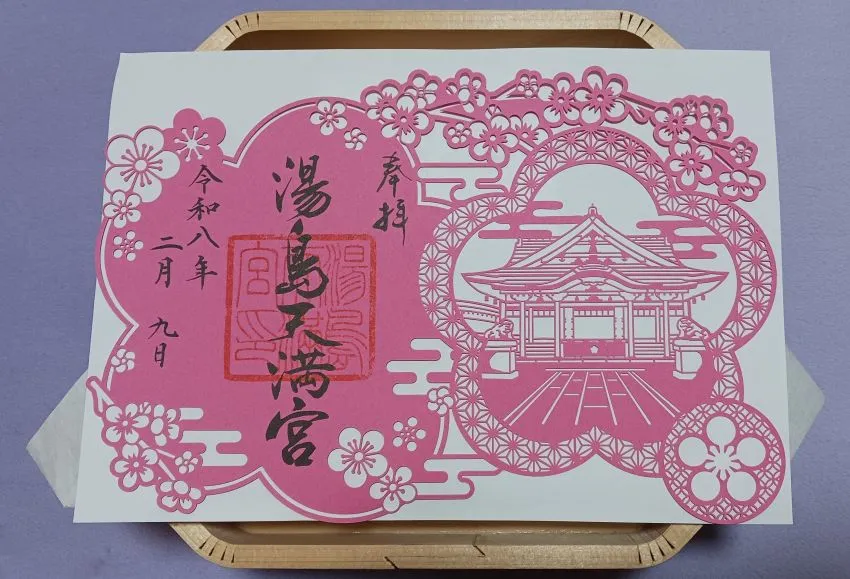 奉拝
湯島天満宮
湯島天満宮印
令和八年
二月 九日